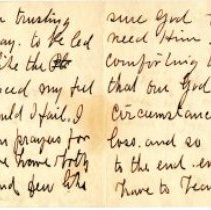 trusting
day. to be led
like the
ced my ful
uld I fail. I
n prayers for
e home
and
sure God
need Him
comforting
that our God
circumstance
loss. and so
to the end. en
have to fear